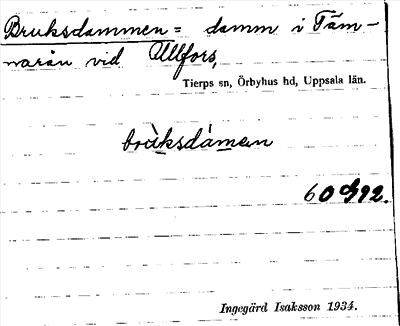 Bruksdammen = damm i Täm-
narån vid Ullfors,
Tierps sn, Örbyhus hd, Uppsala län.
brùksdámen
Ingegärd Isaksson 1934.